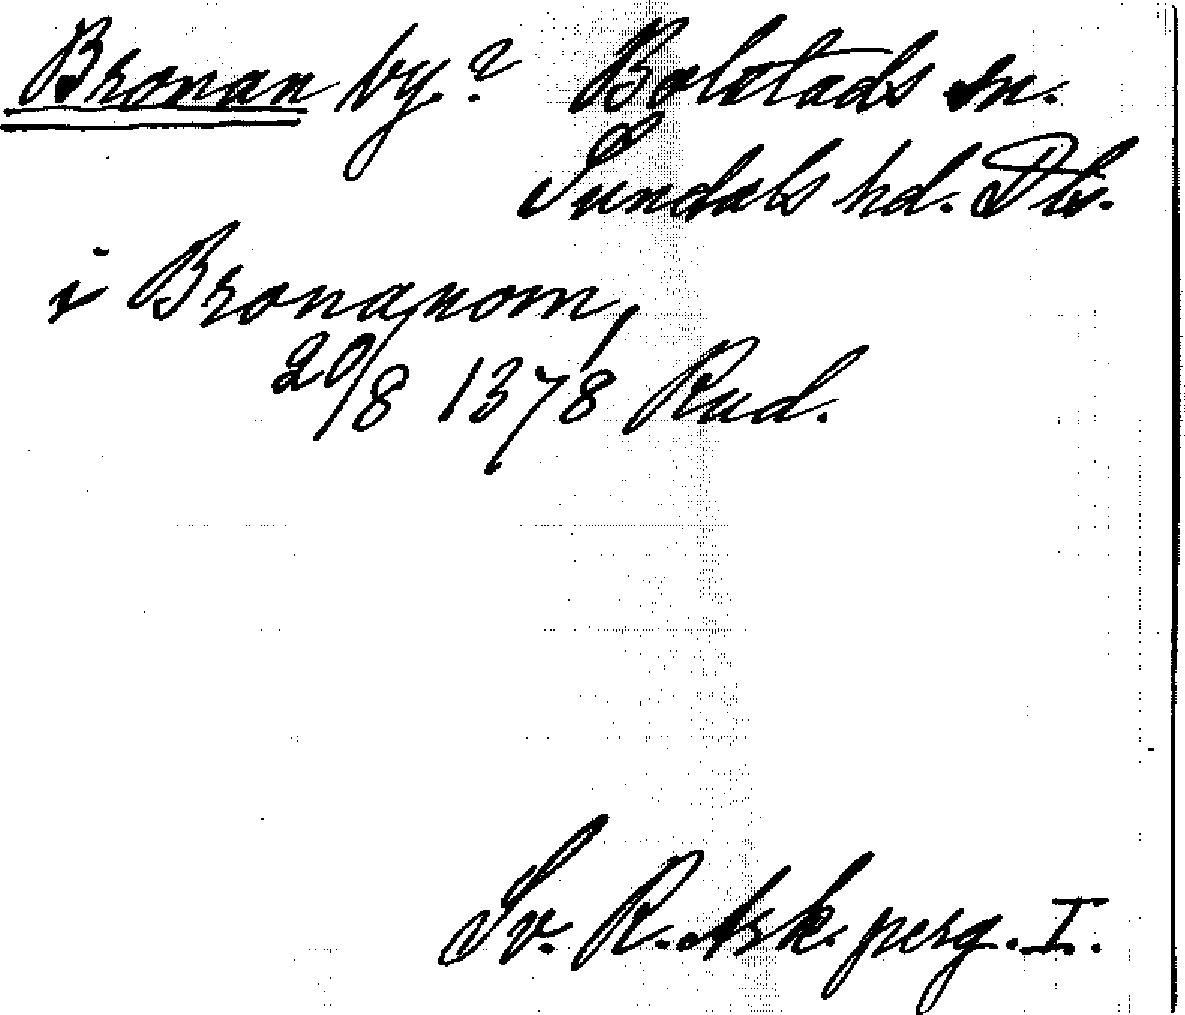 Bronan by.? Bolstads sn.
Sundals hd. Dls.
i Brona͟nom,
20/8 1378 Rud.
Sv. R. Ark. perg. I.